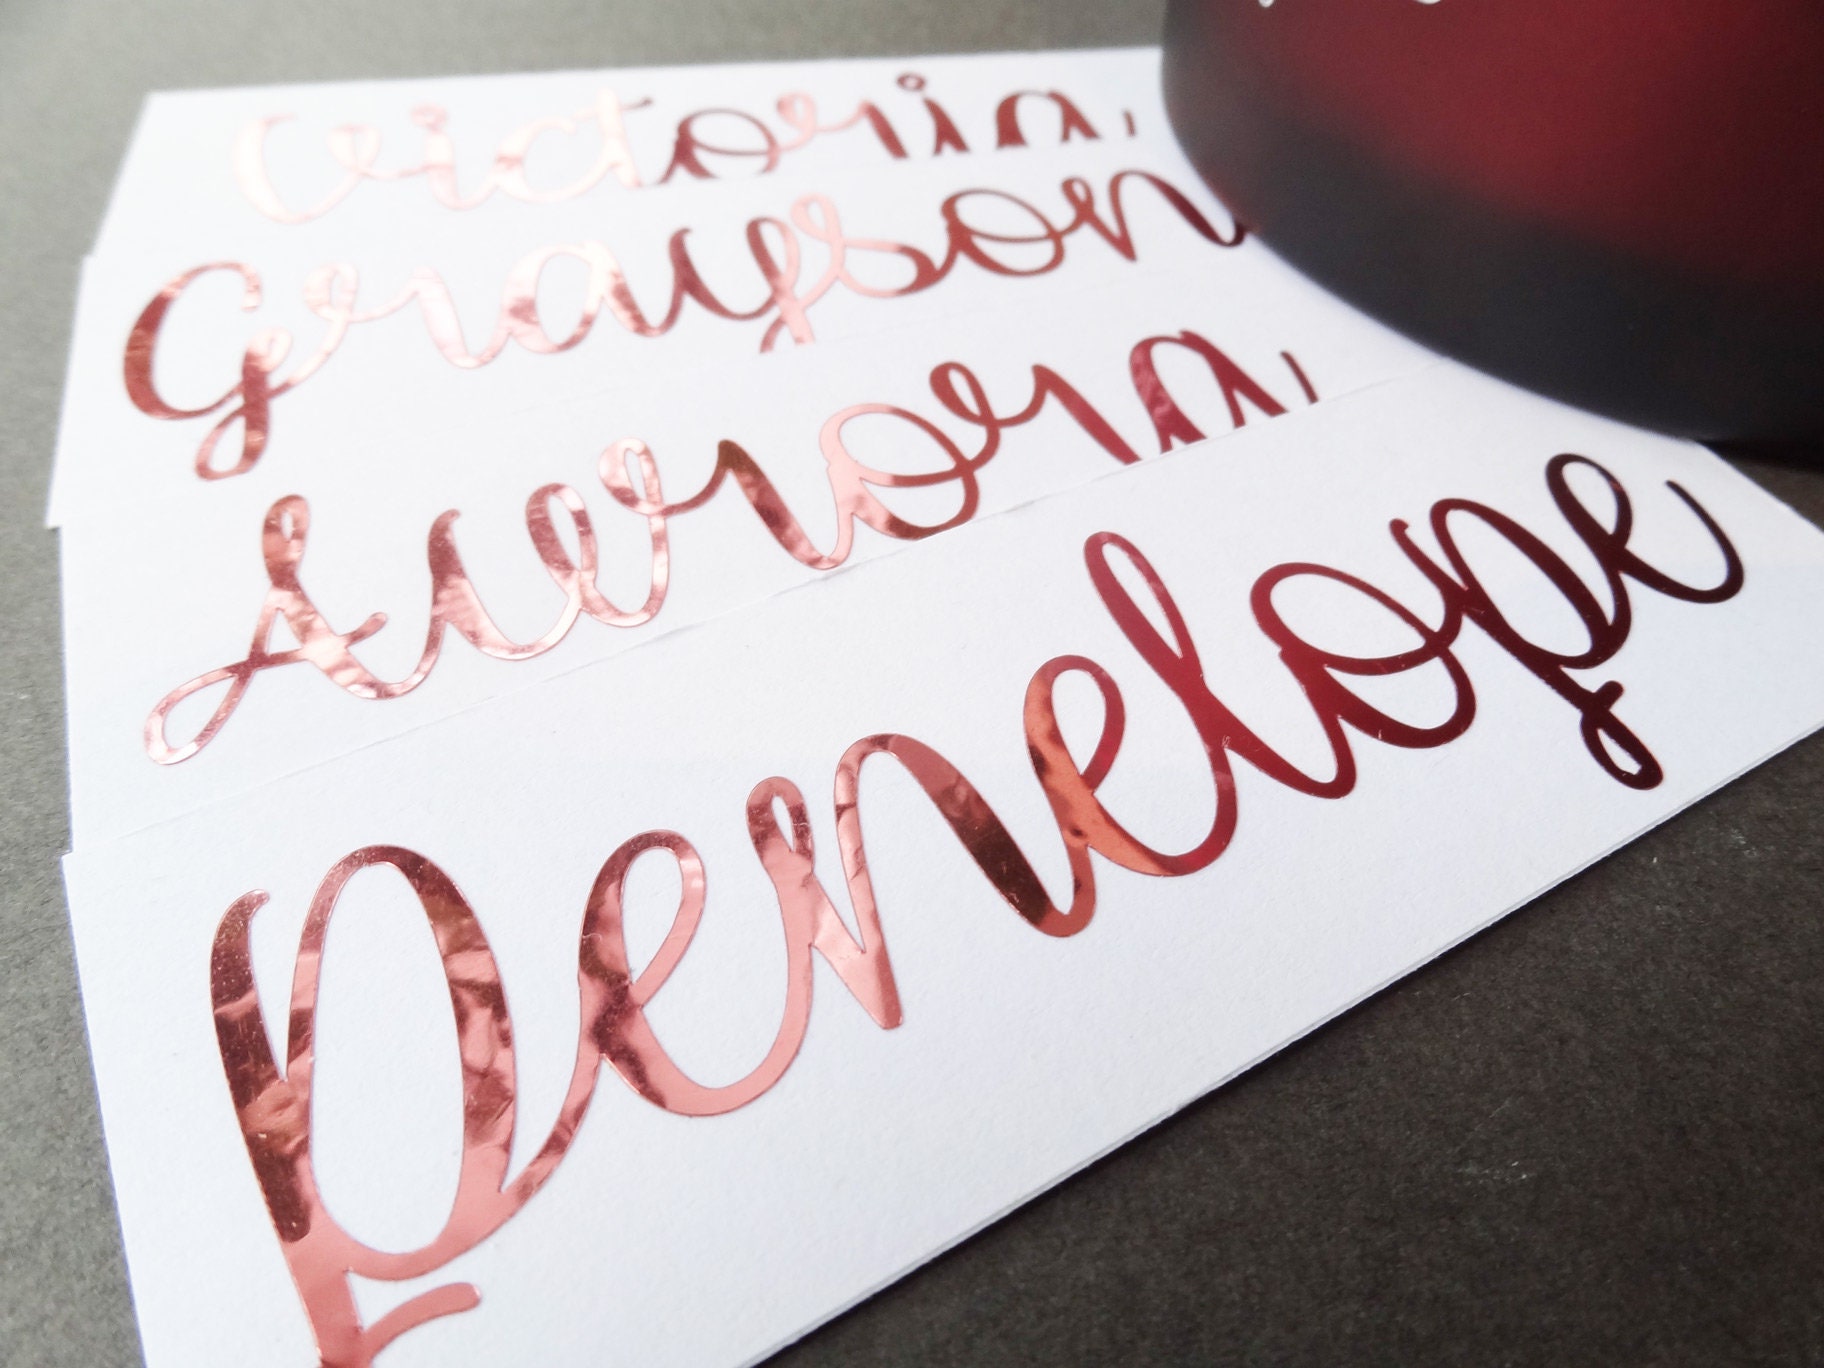 Victoria
Grayson
Aurora
Penelope